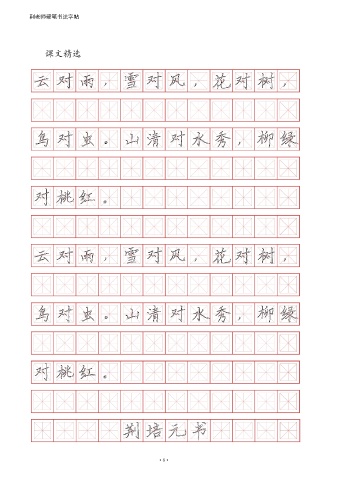 荆老师硬笔书法字帖
课文精选
云对雨，雪对风，花对树，
鸟对虫。山清对水秀，柳绿
对桃红。
云对雨，雪对风，花对树，
鸟对虫。山清对水秀，柳绿
对桃红。
荆培元书